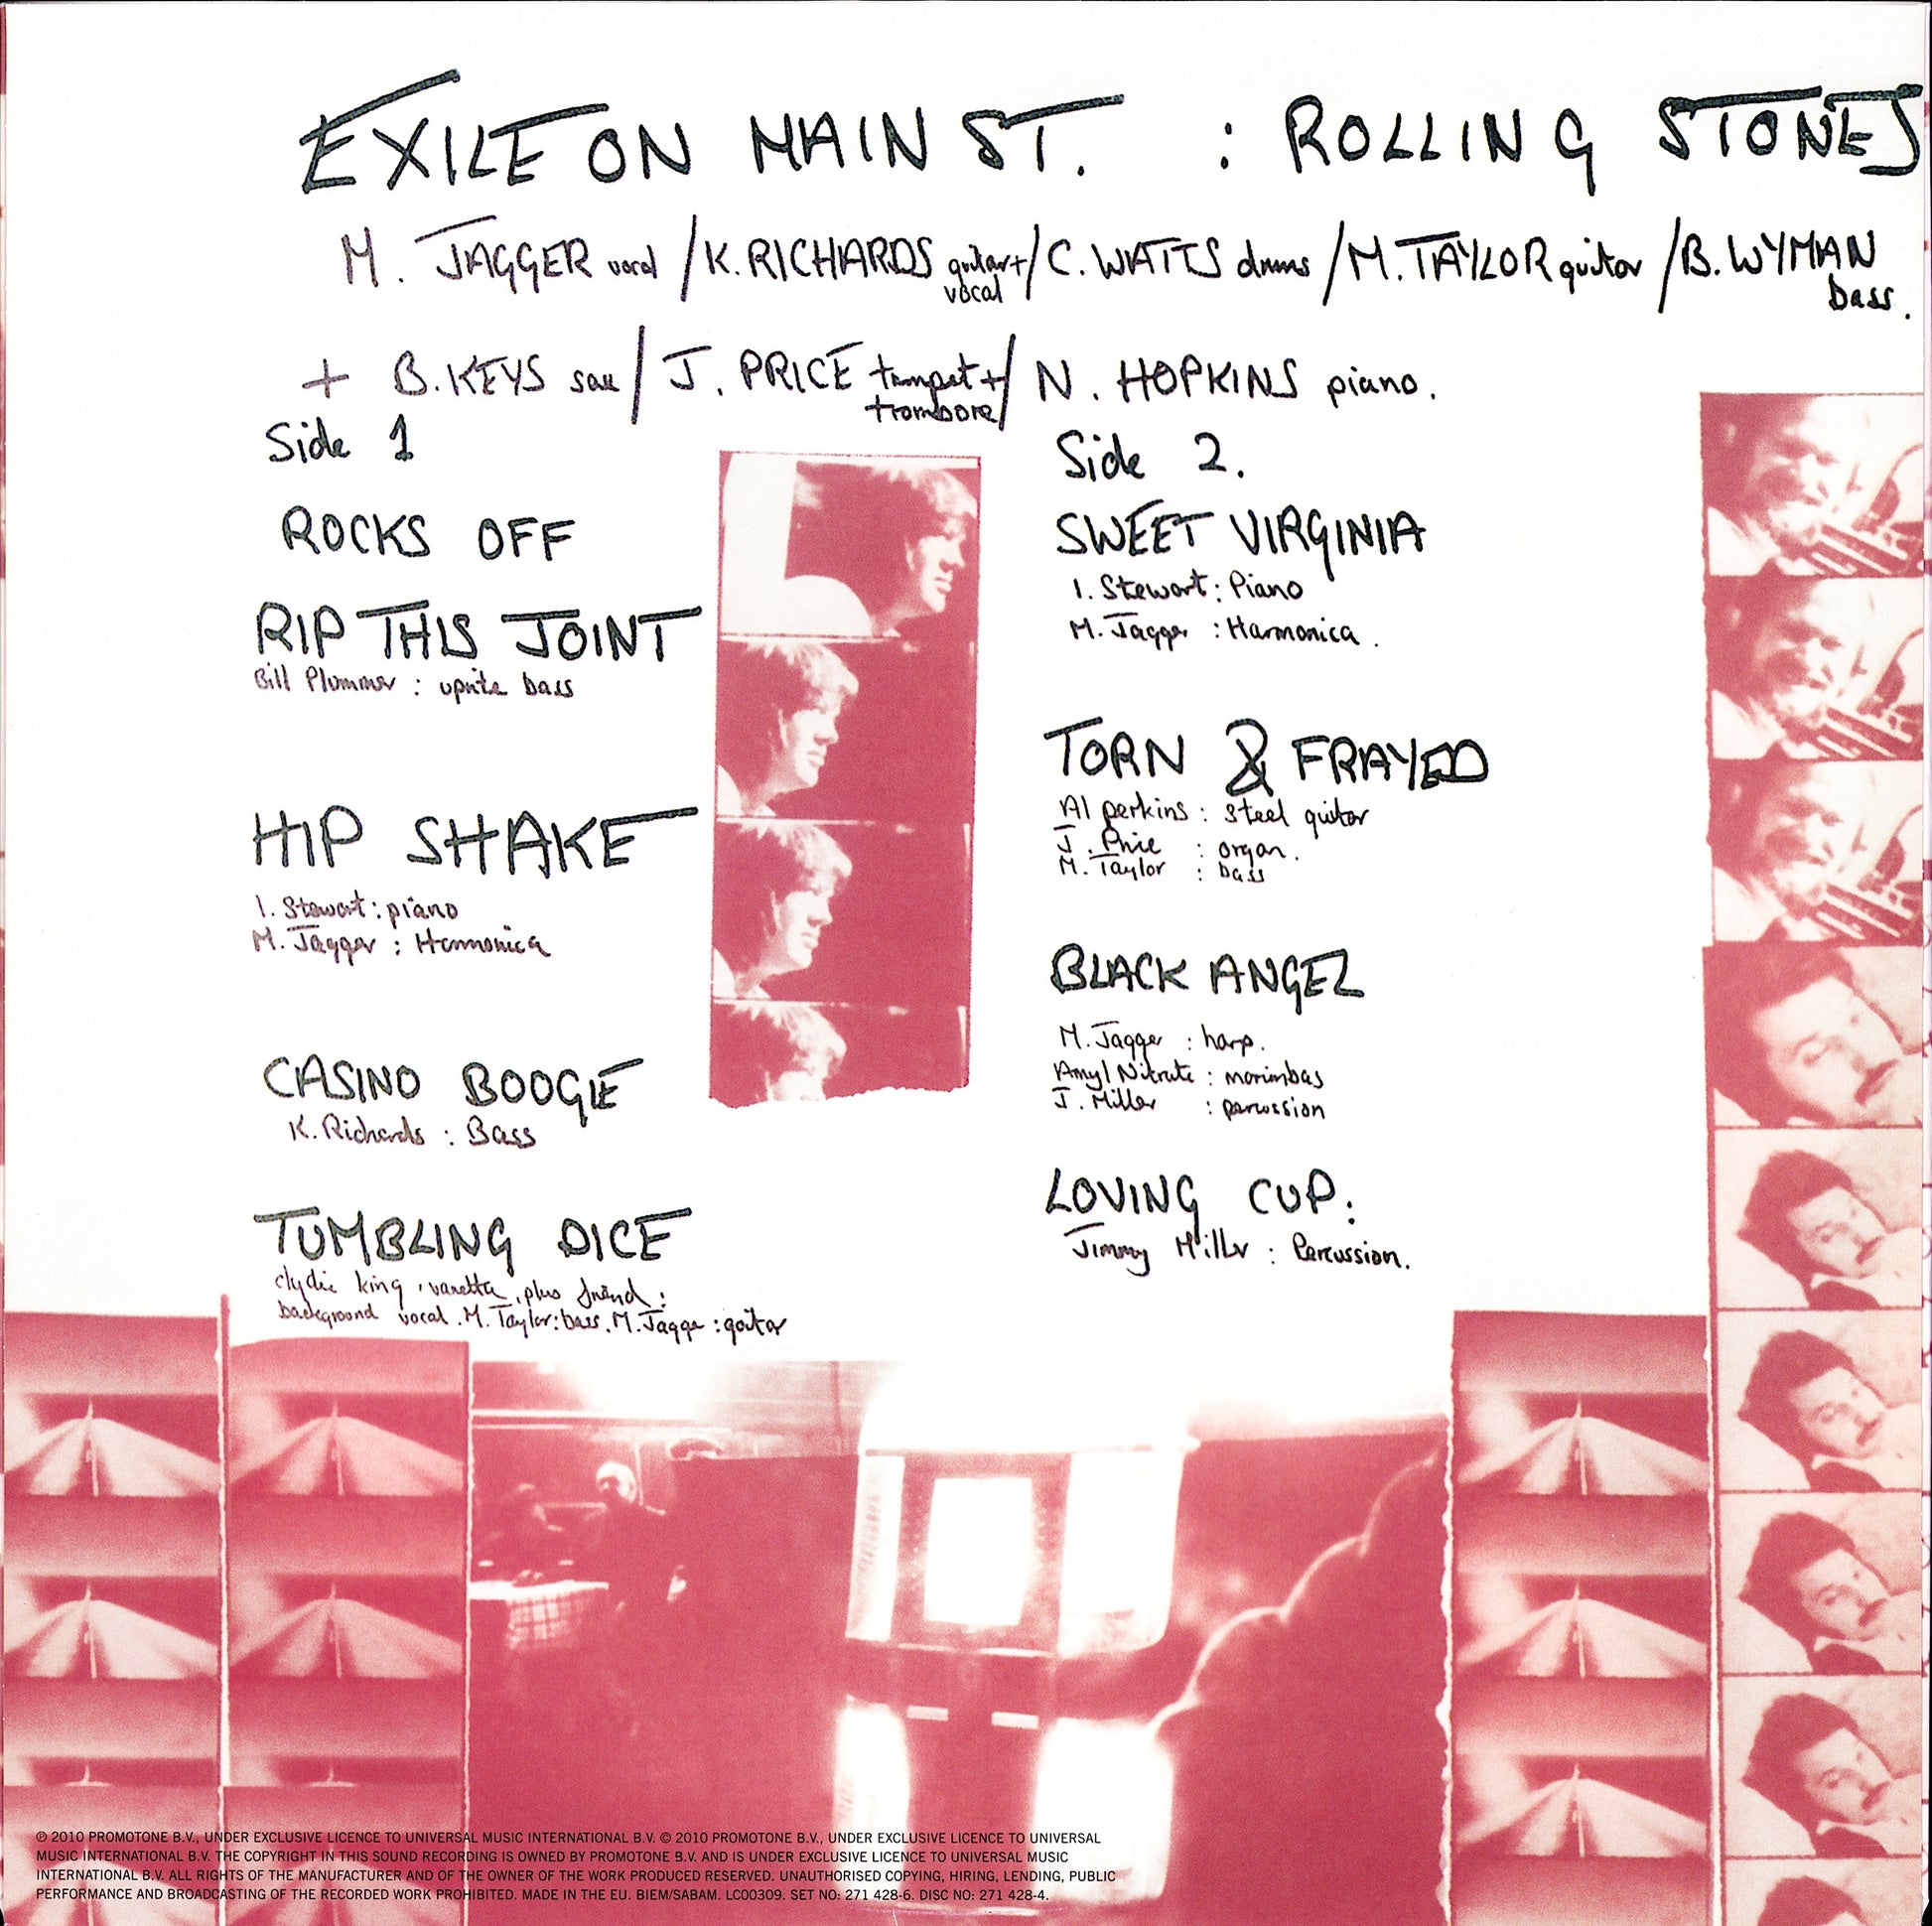 EXILE ON MAIN ST. : ROLLING STONES
M. JAGGER vocal / K. RICHARDS guitar + vocal / C. WATTS drums / M. TAYLOR guitar / B. WYMAN bass.
+ B. KEYS sax / J. PRICE trumpet + trombone / N. HOPKINS piano.
Side 1
ROCKS OFF
RIP THIS JOINT
Bill Plummer : uprite bass
HIP SHAKE
I. Stewart : piano
M. Jagger : Harmonica
CASINO BOOGIE
K. Richards : Bass
TUMBLING DICE
clydie king, vanetta, plus friend :
background vocal. M. Taylor : bass. M. Jagger : guitar
Side 2.
SWEET VIRGINIA
I. Stewart : Piano
M. Jagger : Harmonica.
TORN & FRAYED
Al perkins : steel guitar
J. Price : organ.
M. Taylor : bass
BLACK ANGEL
M. Jagger : harp.
Amyl Nitrate : marimbas
J. Miller : percussion
LOVING CUP :
Jimmy Miller : Percussion.
℗ 2010 PROMOTONE B.V., UNDER EXCLUSIVE LICENCE TO UNIVERSAL MUSIC INTERNATIONAL B.V. © 2010 PROMOTONE B.V., UNDER EXCLUSIVE LICENCE TO UNIVERSAL
MUSIC INTERNATIONAL B.V. THE COPYRIGHT IN THIS SOUND RECORDING IS OWNED BY PROMOTONE B.V. AND IS UNDER EXCLUSIVE LICENCE TO UNIVERSAL MUSIC
INTERNATIONAL B.V. ALL RIGHTS OF THE MANUFACTURER AND OF THE OWNER OF THE WORK PRODUCED RESERVED. UNAUTHORISED COPYING, HIRING, LENDING, PUBLIC
PERFORMANCE AND BROADCASTING OF THE RECORDED WORK PROHIBITED. MADE IN THE EU. BIEM/SABAM. LC00309. SET NO: 271 428-6. DISC NO: 271 428-4.